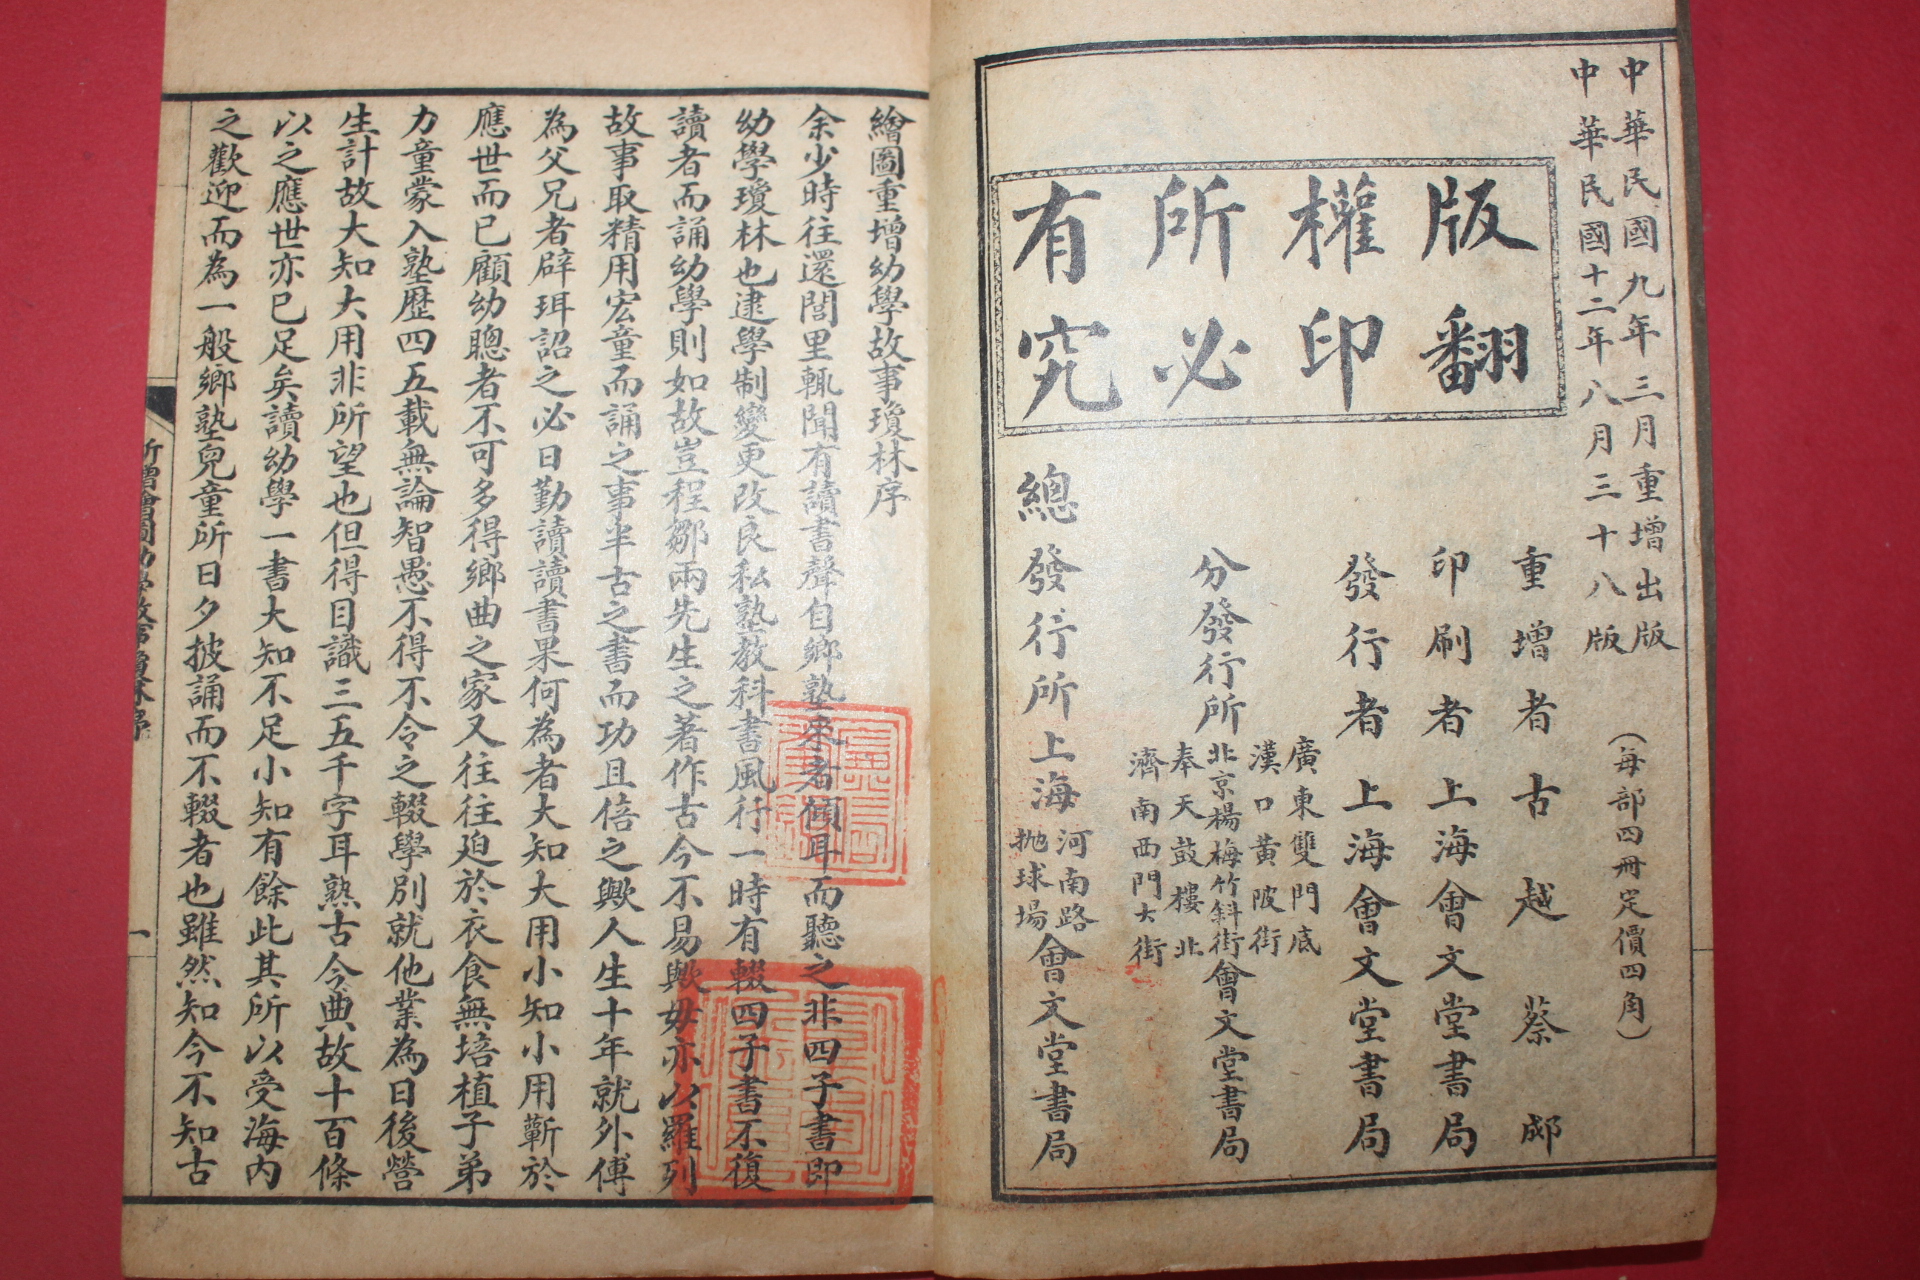 中華民國九年三月重增出版
中華民國十二年八月三十八版
(每部四冊定價四角)
版權所有
翻印必究
重增者古越蔡郕
印刷者上海會文堂書局
發行者上海會文堂書局
分發行所
廣東雙門底
漢口黃陂街
北京楊梅竹斜街
奉天鼓樓北
濟南西門大街
會文堂書局
總發行所上海
河南路
拋球場
會文堂書局
繪圖重增幼學故事瓊林序
余少時往還閭里輒聞有讀書聲自鄉塾來者傾耳而聽之非四子書即
幼學瓊林也逮學制變更改良私塾教科書風行一時有輟四子書不復
讀者而誦幼學則如故豈程鄒兩先生之著作古今不易歟毋亦以羅列
故事取精用宏童而誦之事半古之書而功且倍之歟人生十年就外傅
為父兄者辟珥詔之必日勤讀讀書果何為者大知大用小知小用蘄於
應世而已顧幼聰者不可多得鄉曲之家又往往廹於衣食無培植子弟
力童蒙入塾歷四五載無論智愚不得不令之輟學別就他業為日後營
生計故大知大用非所望也但得目識三五千字耳熟古今典故十百條
以之應世亦已足矣讀幼學一書大知不足小知有餘此其所以受海內
之歡迎而為一般鄉塾兒童所日夕披誦而不輟者也雖然知今不知古
新增繪圖幼學故事瓊林序
一